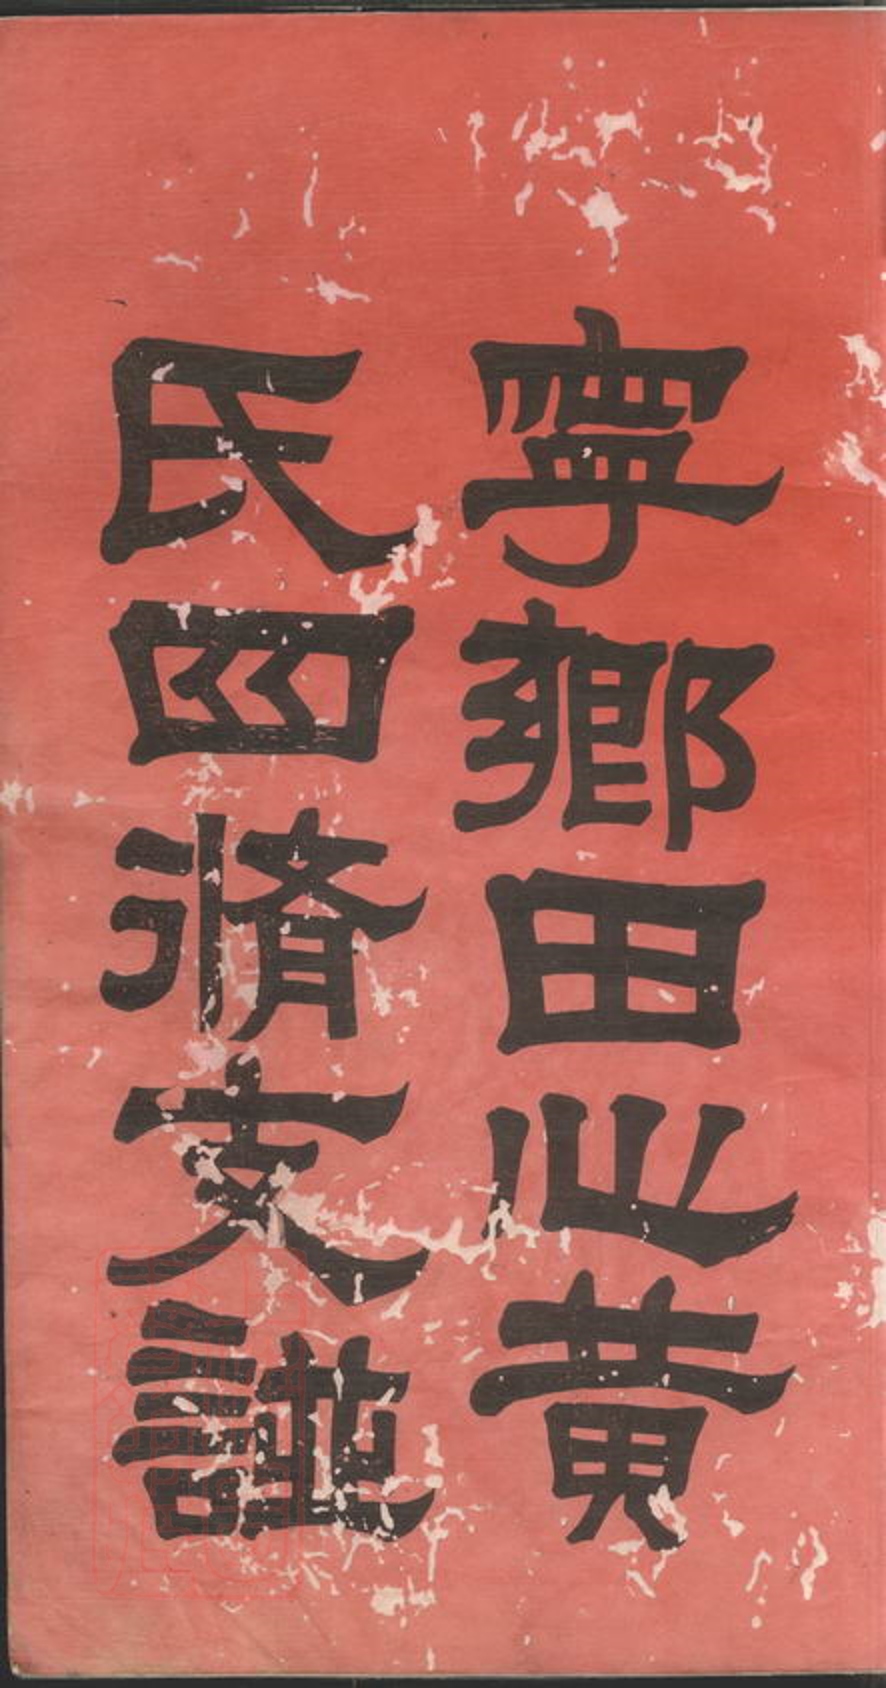 寧鄉田心黃
氏四脩支譜